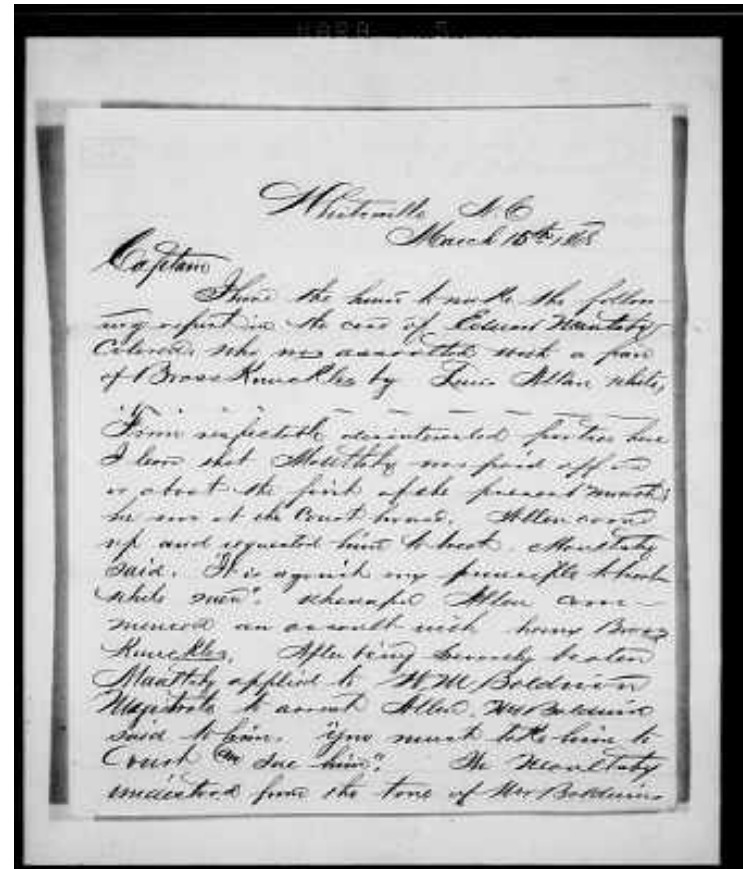 Whiteville N.C
March 15th 1868
Captain
I have the honor to make the follow-
ing report in the case of Edward
Colored, who was assaulted with a pair
of Brass Knuckles by Allen white,
From respectable disinterested parties here
I learn that was paid off on
or about the first of the present month;
he was at the Court house. Allen came
up and requested him to treat.
said. "It is against my principle to treat
white men". whereupon Allen com-
menced an assault with heavy Brass
Knuckles. After being severely beaten
applied to W M Baldwin
Magistrate to arrest Allen. Mr Baldwin
said to him. "you must take him to
Court and sue him". He
understood from the tone of Mr Baldwins